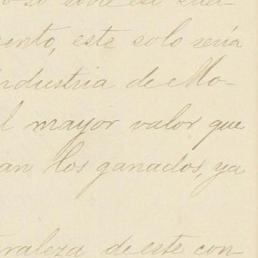 sobre
ento, este solo sería
industria de Mo-
l mayor valor que
an los ganados, ya
raleza de este con